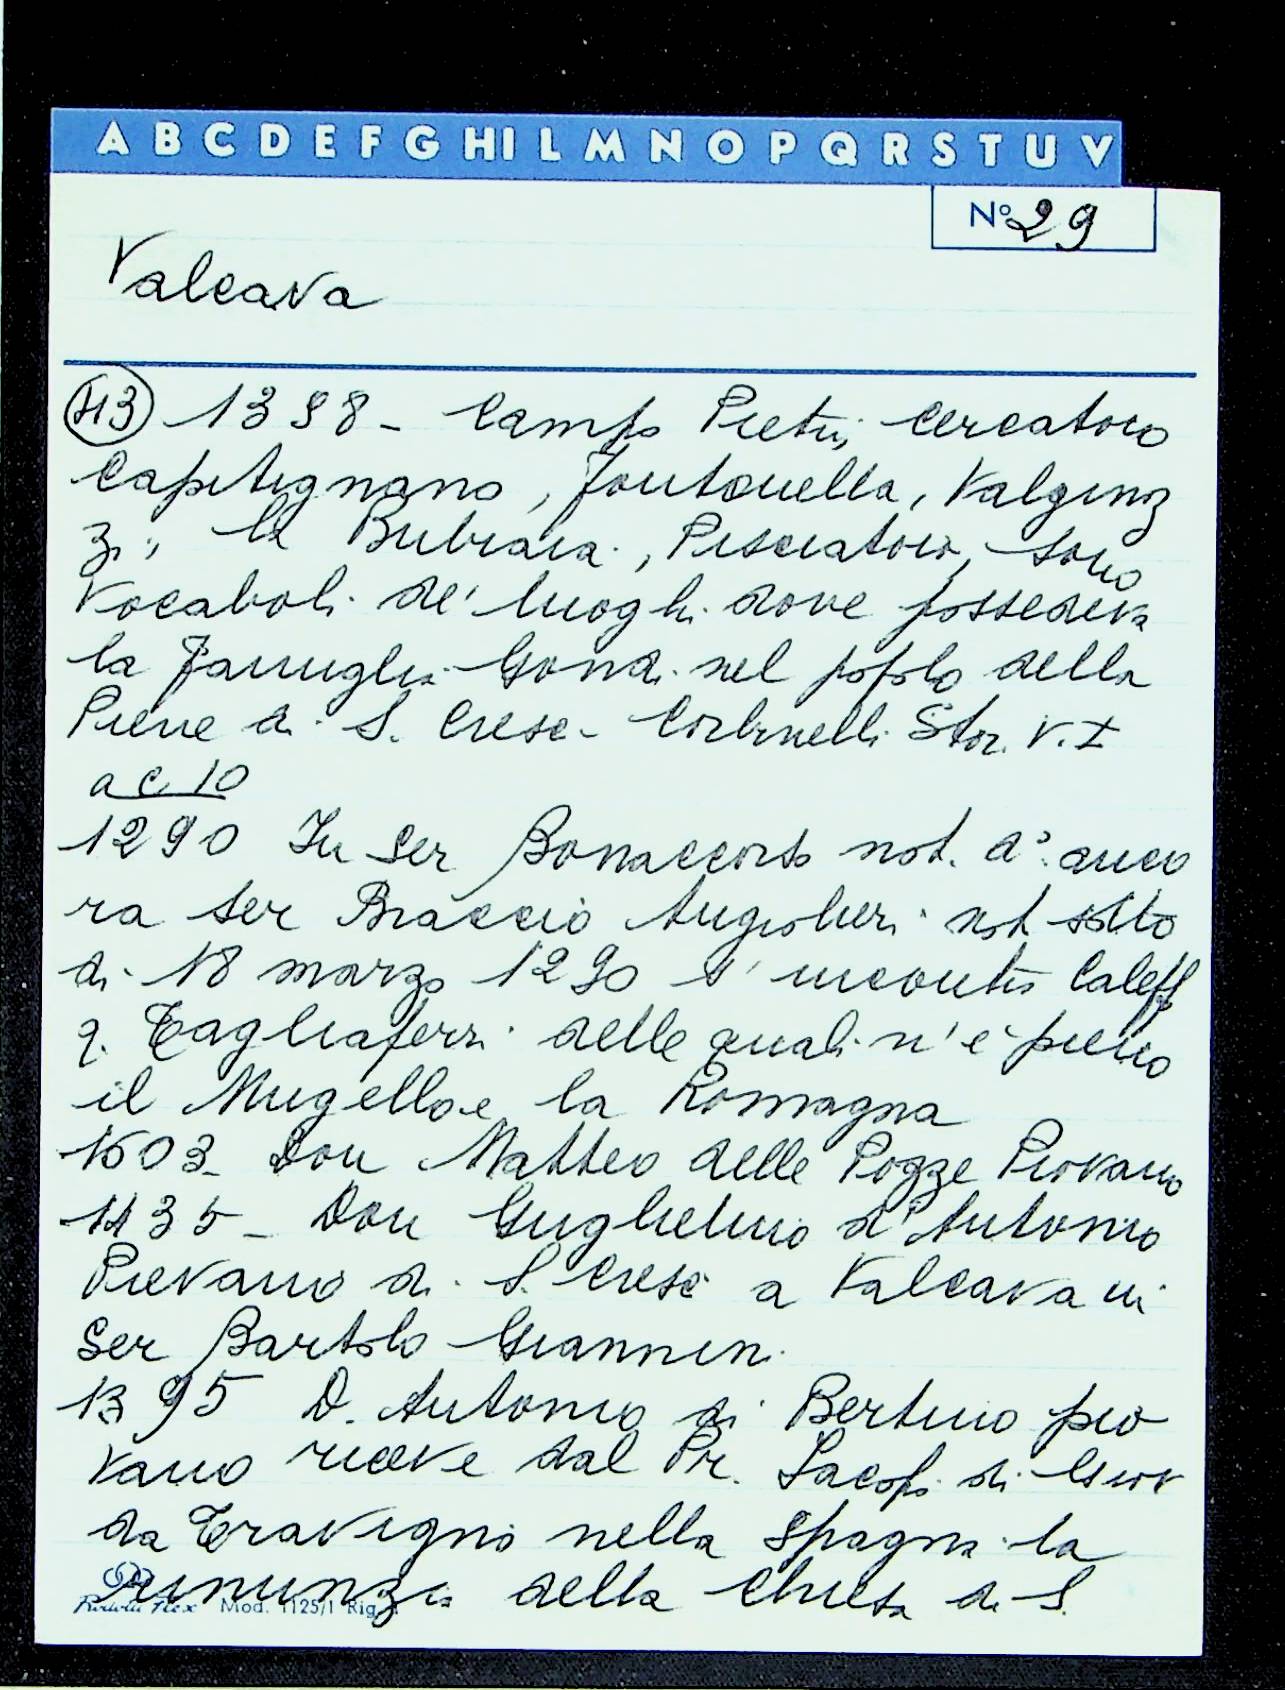 A B C D E F G H I L M N O P Q R S T U V
N° 29
Valcava
(43) 1398 - Campo Pietri, Cercatoio
Capitignano, Fontanella, Valginz
zi, la Bubraia, Pisciatoio, sono
Vocaboli de' luoghi dove possedeva
la Famiglia Gondi nel popolo della
Pieve di S. Cresc - Corbinelli Stor. V. I
a c. 10
1290 In Ser Bonaccorso not. d°. anco
ra ser Braccio Angiolieri not sotto
di 18 marzo 1290 s'incontra Caleff
q. Tagliaferri delle quali n'è pieno
il Mugello e la Romagna
1603 - Don Matteo delle Pozze Piovano
1435 - Don Guglielmo d'Antonio
Pievano di S. Cresci a Valcava in
Ser Bartolo Giannini
1395 D. Antonio di Bertino pio
vano riceve dal Pr. Iacopo di Giov
da Travigni nella Spagna la
rinunzia della Chiesa di S.
Mod. 1125/1 Rig.